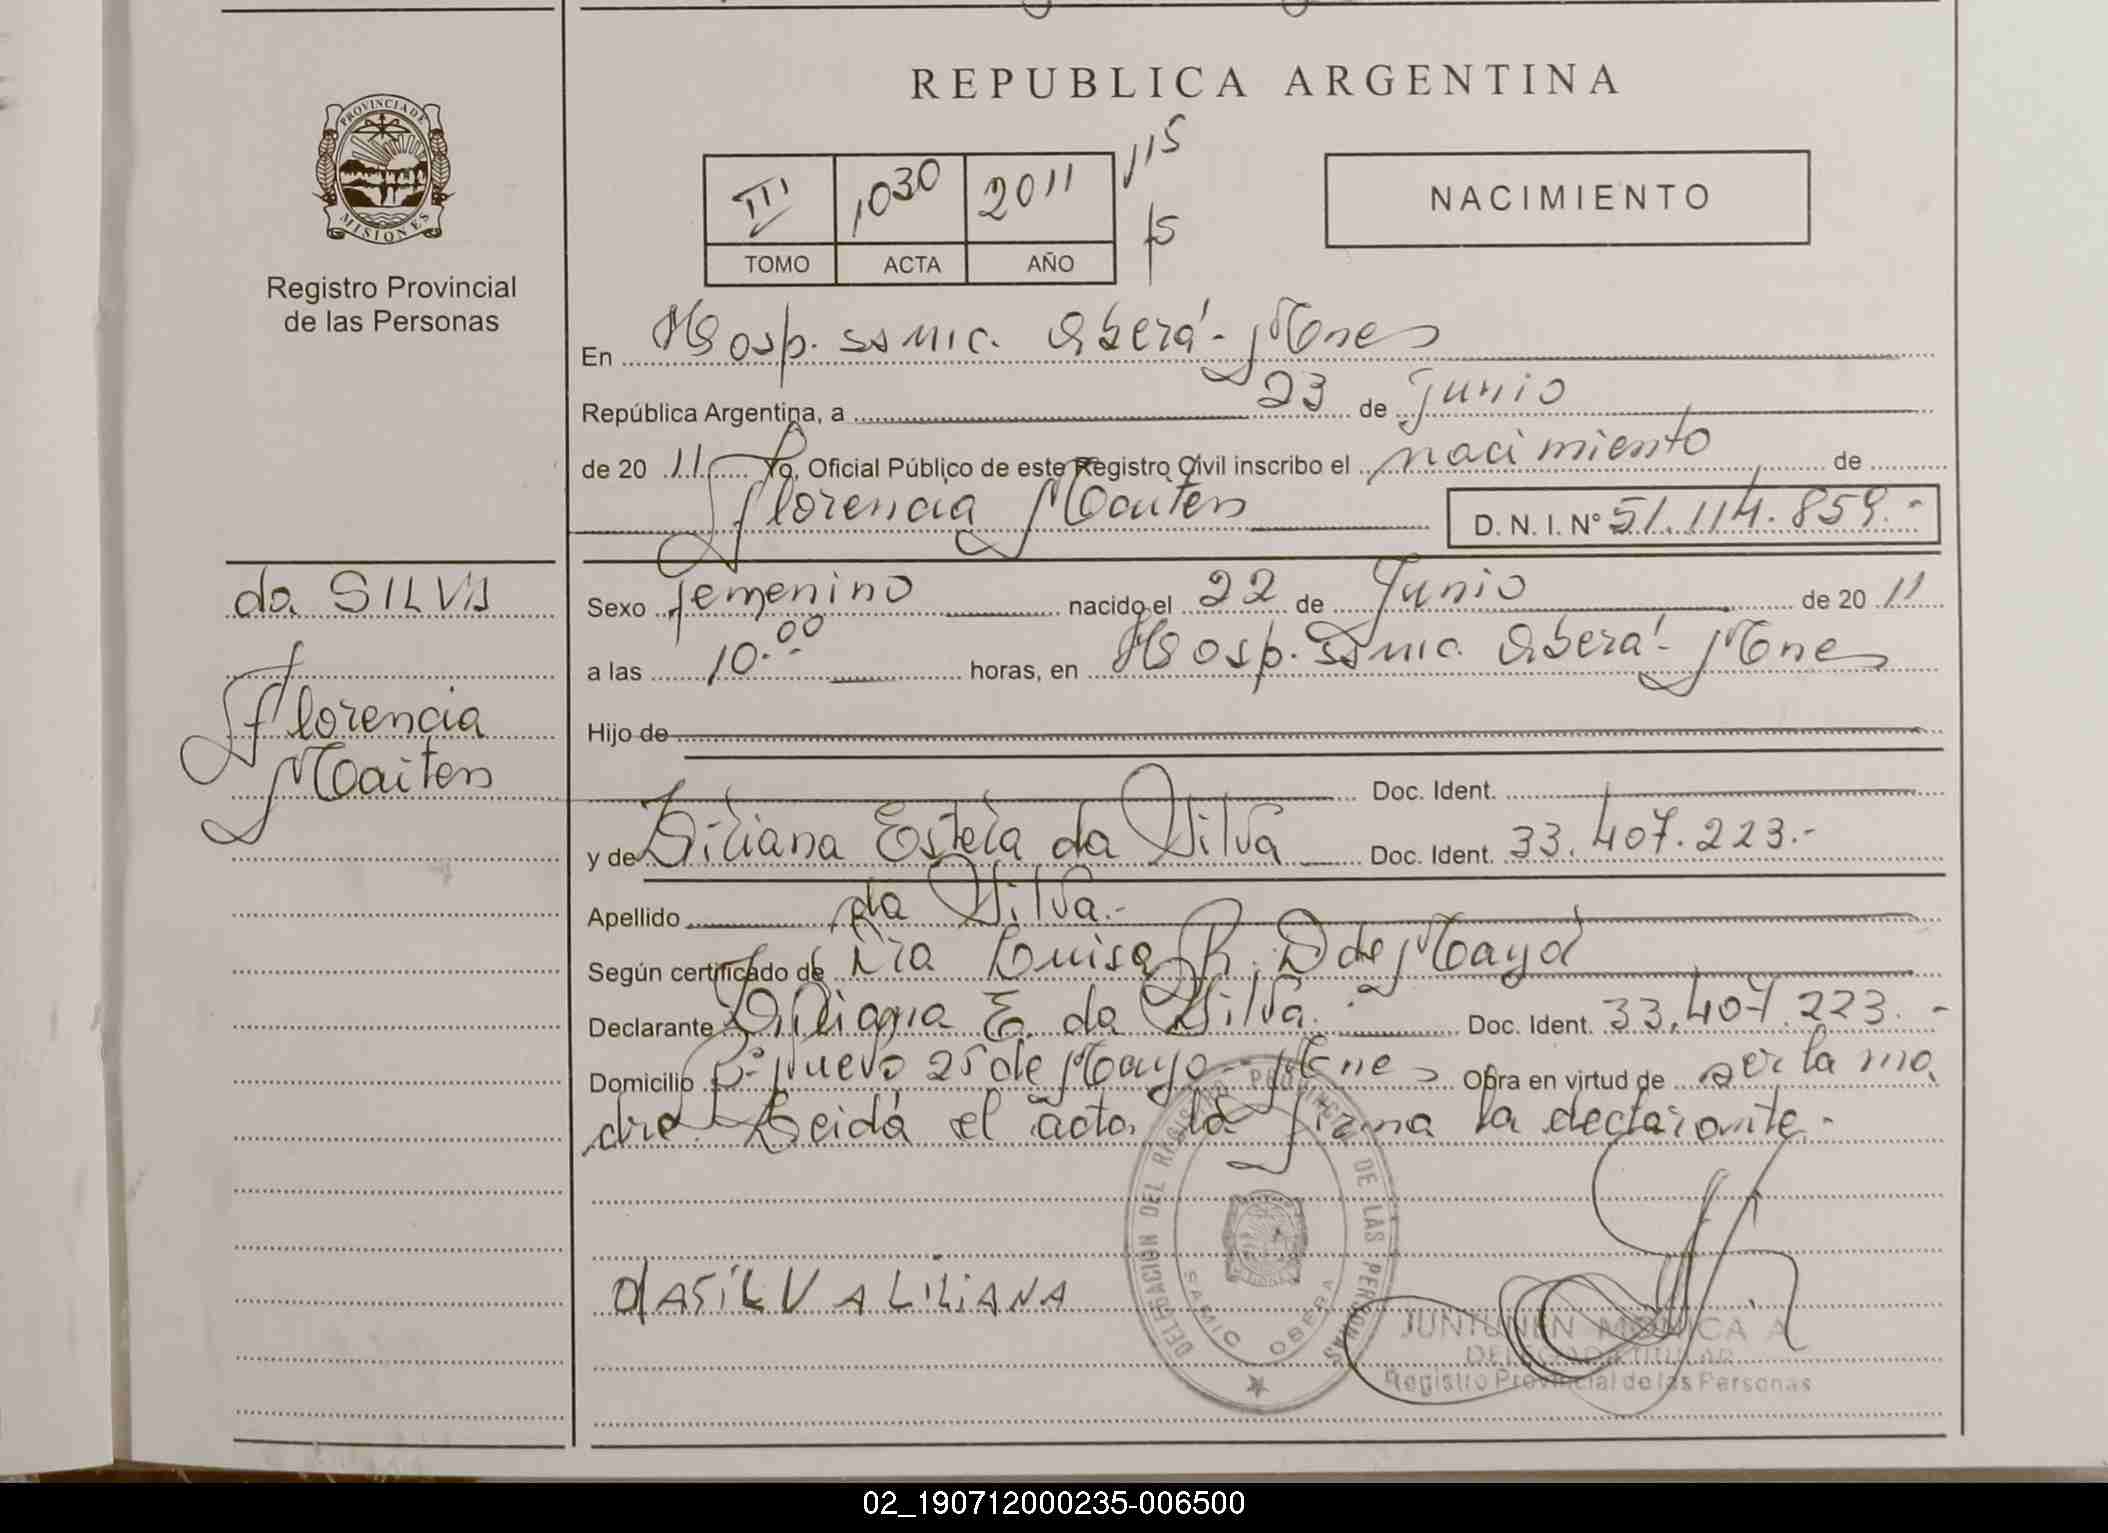 REPUBLICA ARGENTINA
PROVINCIA DE
MISIONES
Registro Provincial
de las Personas
III 1030 2011
TOMO ACTA AÑO
NACIMIENTO
En Hosp. SAMIC. Oberá - Mnes
República Argentina, a 23 de Junio
de 20 11 Yo, Oficial Público de este Registro Civil inscribo el nacimiento de
Florencia Maiten D. N. I. N° 51.114.859.-
da SILVA
Florencia
Maiten
Sexo femenino nacido el 22 de Junio de 20 11
a las 10.00 horas, en Hosp. SAMIC. Oberá - Mnes
Hijo de
Doc. Ident.
y de Liliana Estela da Silva Doc. Ident. 33.407.223.-
Apellido da Silva.-
Según certificado de Luisa R. D de Maya
Declarante Liliana E. da Silva. Doc. Ident. 33.407.223.-
Domicilio Bº Nuevo 25 de Mayo - Mnes Obra en virtud de ser la ma
dre. Leida el acta la firma la declarante.-
DELEGACION DEL REGISTRO PROVINCIAL DE LAS PERSONAS
SAMIC OBERA
da SILVA LILIANA
JUNTUNEN MONICA A
DELEGADA TITULAR
Registro Provincial de las Personas
02_190712000235-006500